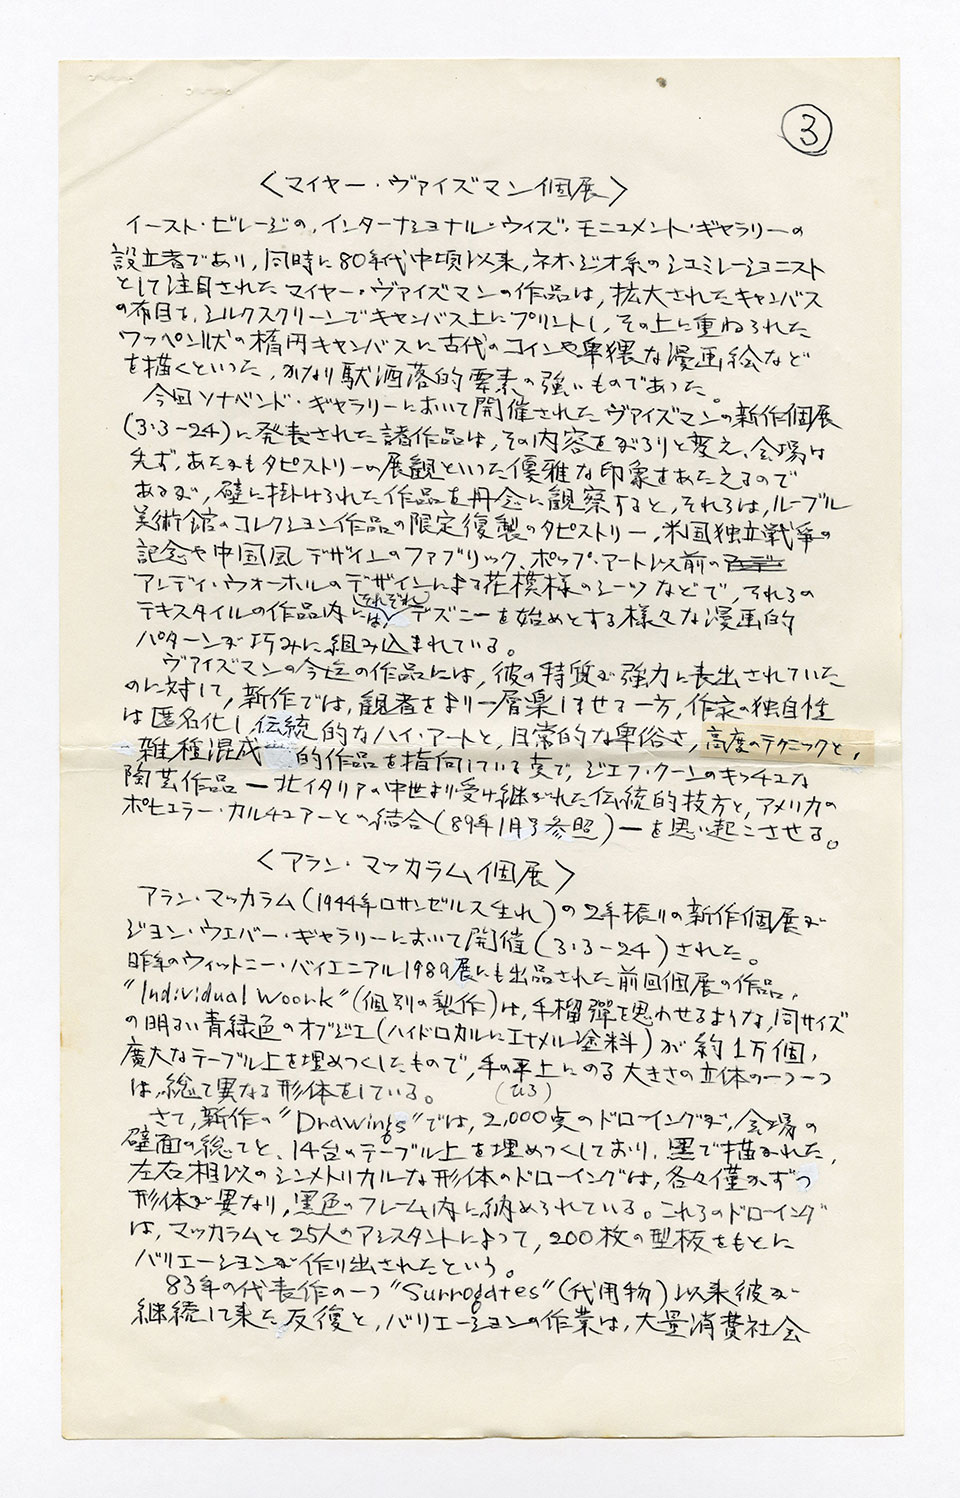 3
〈マイヤー・ヴァイズマン個展〉
イースト・ビレージの,インターナショナル・ウィズ・モニュメント・ギャラリーの
設立者であり,同時に80年代中頃以来,ネオ・ジオ系のシュミレーショニスト
として注目されたマイヤー・ヴァイズマンの作品は,拡大されたキャンバス
の布目を,シルクスクリーンでキャンバス上にプリントし,その上に重ねられた
ワッペン状の楕円キャンバスに古代のコインや卑猥な漫画絵など
を描くといった,かなり駄洒落的要素の強いものであった。
今回ソナベンド・ギャラリーにおいて開催されたヴァイズマンの新作個展
(3・3-24)に発表された諸作品は,その内容をがらりと変え,会場は
先ず,あたかもタピストリーの展観といった優雅な印象をあたえるので
あるが,壁に掛けられた作品を丹念に観察すると,それらは,ルーブル
美術館のコレクション作品の限定復製のタピストリー,米国独立戦争の
記念や中国風デザインのファブリック,ポップ・アート以前の
アンディ・ウォーホルのデザインによる花模様のシーツなどで,それらの
テキスタイルの作品内には,それぞれデズニーを始めとする様々な漫画的
パターンが巧みに組み込まれている。
ヴァイズマンの今迄の作品には,彼の特質が強力に表出されていた
のに対して,新作では,観者をより一層楽しませる一方,作家の独自性
は匿名化し,伝統的なハイ・アートと,日常的な卑俗さ,高度のテクニックと,
雑種混成的作品を指向している点で,ジェフ・クーンのキッチュな
陶芸作品―北イタリアの中世より受け継がれた伝統的技方と,アメリカの
ポピュラー・カルチュアーとの結合(89年1月号参照)―を思い起こさせる。
〈アラン・マッカラム個展〉
アラン・マッカラム(1944年ロサンゼルス生れ)の2年振りの新作個展が
ジョン・ウェバー・ギャラリーにおいて開催(3・3-24)された。
昨年のウィットニー・バイエニアル1989展にも出品された前回個展の作品,
"Individual Woork"(個別の製作)は,手榴弾を思わせるような,同サイズ
の明るい青緑色のオブジェ(ハイドロカルにエナメル塗料)が約1万個,
廣大なテーブル上を埋めつくしたもので,手の平上にのる大きさの立体の一つ一つ
は,総て異なる形体をしている。 (ひら)
さて,新作の"Drawings"では,2,000点のドローイングが,会場の
壁面の総てと,14台のテーブル上を埋めつくしており,黒で描かれた,
左右相似のシンメトリカルな形体のドローイングは,各々僅かずつ
形体が異なり,黒色のフレーム内に納められている。これらのドローイング
は,マッカラムと25人のアシスタントによって,200枚の型板をもとに
バリエーションが作り出されたという。
83年の代表作の一つ"Surrogates"(代用物)以来彼が
継続して来た反復と,バリエーションの作業は,大量消費社会